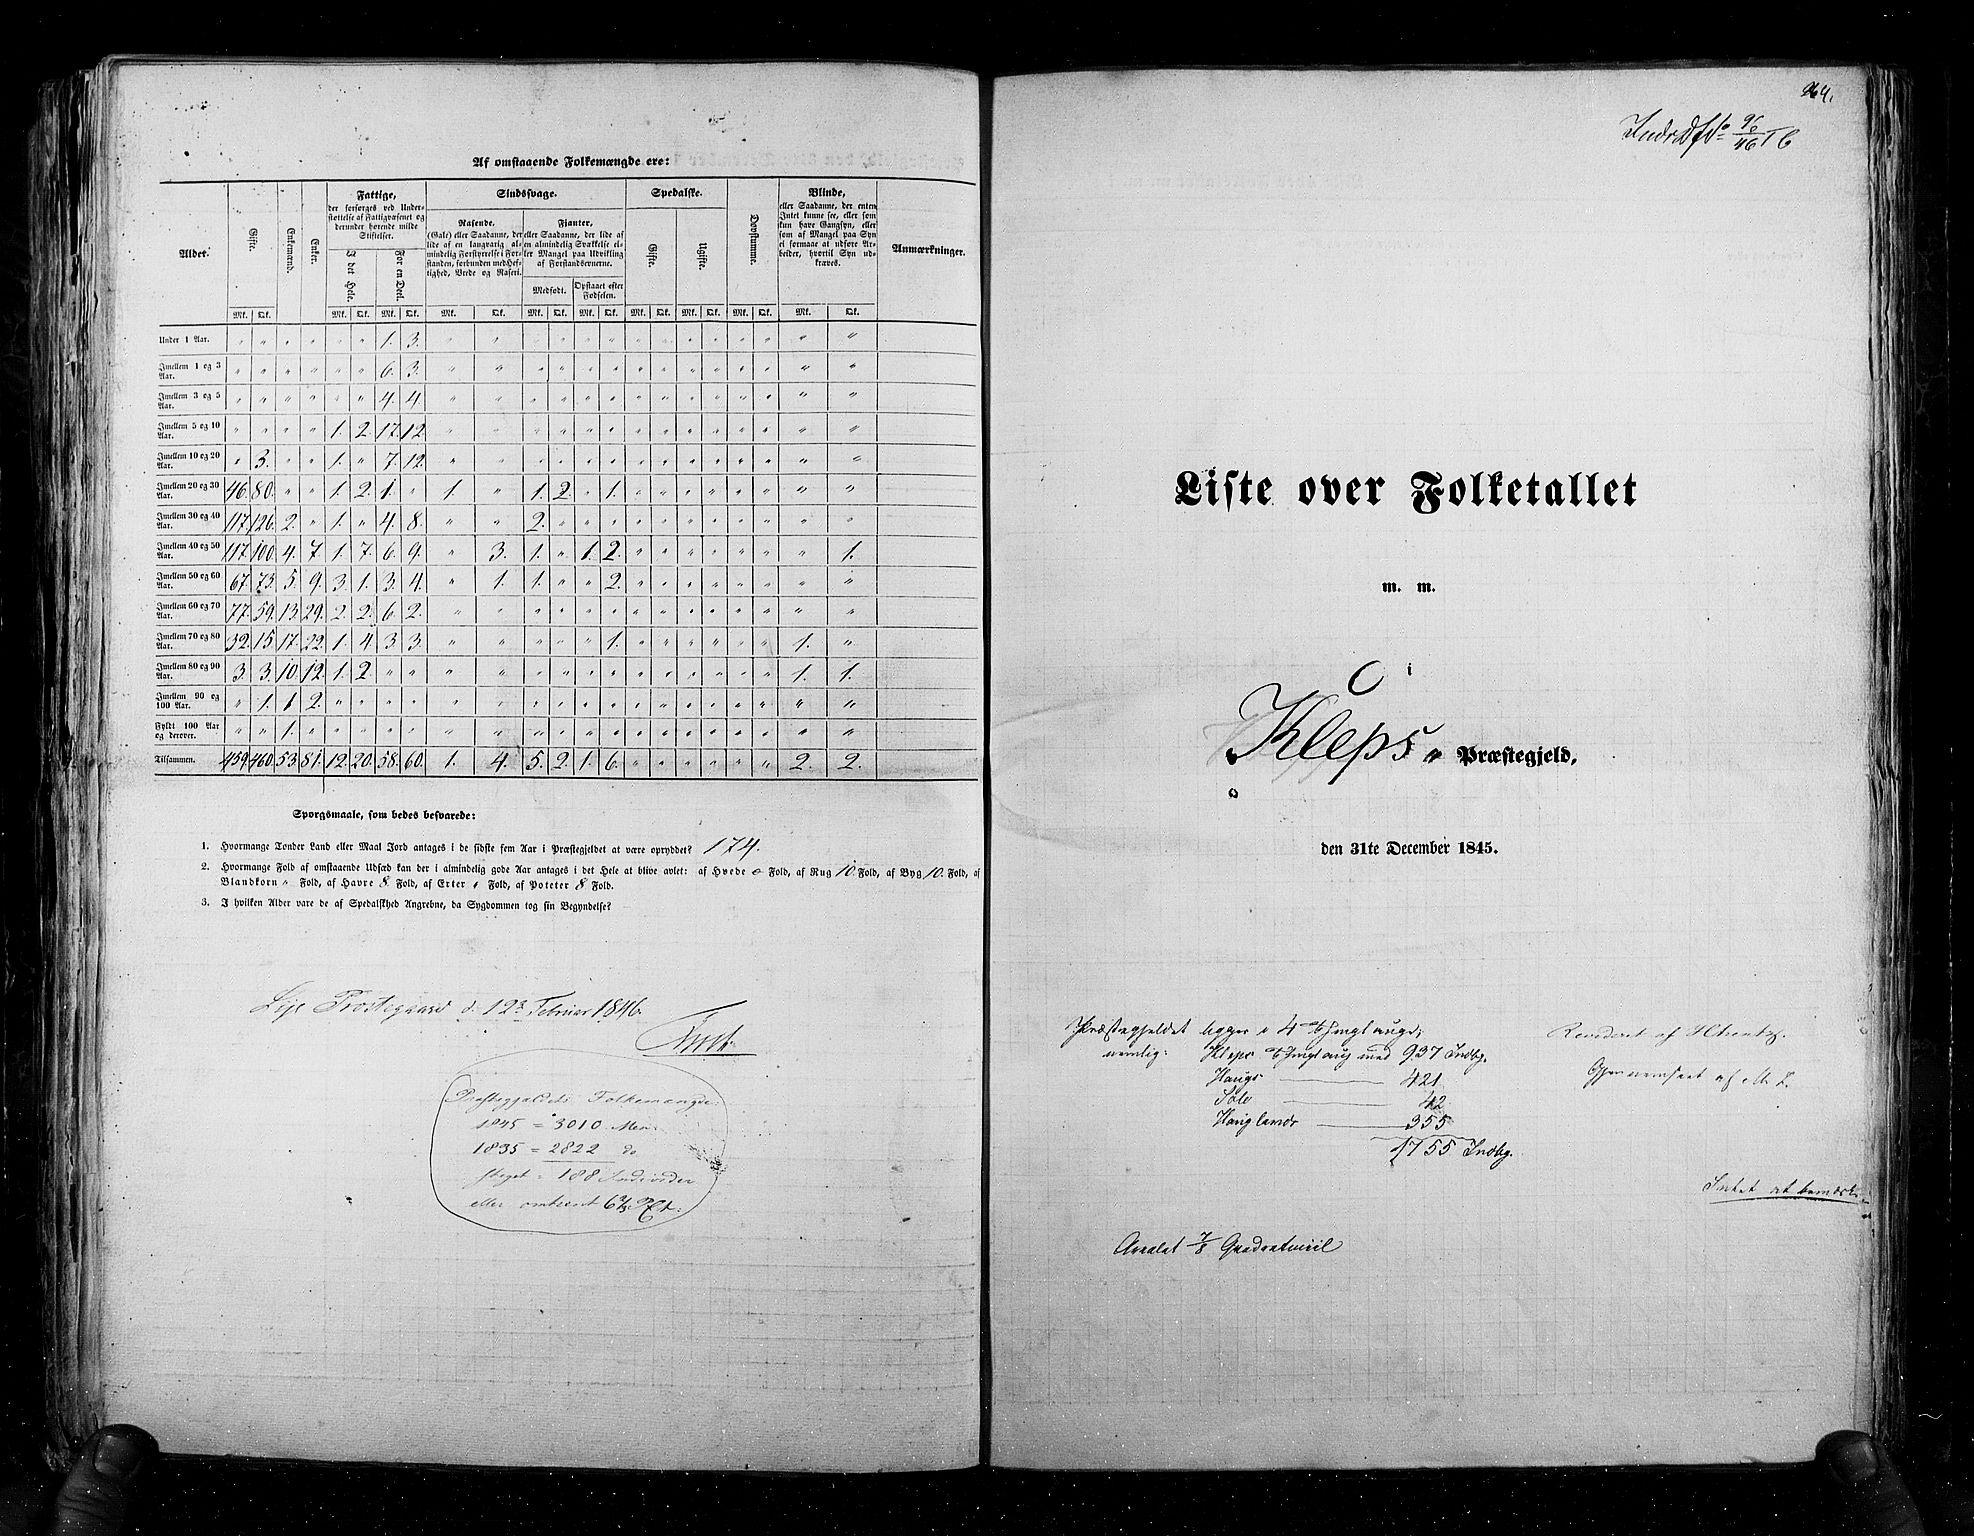 Af omstaaende Folkemængde ere:
Alder. | Gifte. | Enkemænd. | Enker. | Fattige, der forsørges ved Understøttelse af Fattigvæsenet og derunder hørende milde Stiftelser. | Sindssvage. | Spedalske. | Døvstumme. | Blinde, eller Saadanne, der enten Intet kunne see, eller som kun have Gangsyn, eller som af Mangel paa Syn ei formaae at udføre Arbeider, hvortil Syn udkræves. | Anmærkninger.
I det Hele. | For en Deel. | Rasende, (Gale) eller Saadanne, der lide af en langvarig almindelig Forstyrrelse i Forstanden, forbunden med Heftighed, Vrede og Raseri. | Fjanter, eller Saadanne, der lide af en almindelig Svækkelse eller Mangel paa Udvikling af Forstandsevnerne. | Gifte. | Ugifte.
Medfødt. | Opstaaet efter Fødselen.
Mk. | Qk. | Mk. | Qk. | Mk. | Qk. | Mk. | Qk. | Mk. | Qk. | Mk. | Qk. | Mk. | Qk. | Mk. | Qk. | Mk. | Qk. | Mk. | Qk.
Under 1 Aar. | " | " | " | " | " | " | 1. | 3. | " | " | " | " | " | " | " | " | " | " | " | " | " | "
Imellem 1 og 3 Aar. | " | " | " | " | " | " | 6. | 3. | " | " | " | " | " | " | " | " | " | " | " | " | " | "
Imellem 3 og 5 Aar. | " | " | " | " | " | " | 4. | 4. | " | " | " | " | " | " | " | " | " | " | " | " | " | "
Imellem 5 og 10 Aar. | " | " | " | " | 1. | 2. | 17. | 12. | " | " | " | " | " | " | " | " | " | " | " | " | " | "
Imellem 10 og 20 Aar. | " | 3. | " | " | 1. | " | 7. | 12. | " | " | " | " | " | " | " | " | " | " | " | " | " | "
Imellem 20 og 30 Aar. | 46. | 80. | " | " | 1. | 2. | 1. | " | 1. | " | 1. | 2. | " | 1. | " | " | " | " | " | " | " | "
Imellem 30 og 40 Aar. | 117. | 126. | 2. | " | 1. | " | 4. | 8. | " | " | 2. | " | " | " | " | " | " | " | " | " | " | "
Imellem 40 og 50 Aar. | 117. | 100. | 4. | 7. | 1. | 7. | 6. | 9. | " | 3. | 1. | " | 1. | 2. | " | " | " | " | " | " | " | 1.
Imellem 50 og 60 Aar. | 67. | 73. | 5. | 9. | 3. | 1. | 3. | 4. | " | 1. | 1. | " | " | 2. | " | " | " | " | " | " | " | "
Imellem 60 og 70 Aar. | 77. | 59. | 13. | 29. | 2. | 2. | 6. | 2. | " | " | " | " | " | " | " | " | " | " | " | " | " | "
Imellem 70 og 80 Aar. | 32. | 15. | 17. | 22. | 1. | 4. | 3 | 3. | " | " | " | " | " | 1. | " | " | " | " | " | " | 1. | "
Imellem 80 og 90 Aar. | 3. | 3. | 10. | 12. | 1. | 2. | " | " | " | " | " | " | " | " | " | " | " | " | " | " | 1. | 1.
Imellem 90 og 100 Aar. | " | 1. | 1 | 2. | " | " | " | " | " | " | " | " | " | " | " | " | " | " | " | " | " | "
Fyldt 100 Aar og derover. | " | " | 1. | " | " | " | " | " | " | " | " | " | " | " | " | " | " | " | " | " | " | "
Tilsammen. | 459. | 460. | 53. | 81. | 12. | 20. | 58. | 60. | 1. | 4. | 5. | 2. | 1. | 6. | " | " | " | " | " | " | 2. | 2.
Spørgsmaale, som bedes besvarede:
1. Hvormange Tønder Land eller Maal Jord antages i de sidste fem Aar i Præstegjeldet at være opryddet? 174.
2. Hvormange Fold af omstaaende Udsæd kan der i almindelig gode Aar antages i det Hele at blive avlet: af Hvede o Fold, af Rug 10. Fold, af Byg 10. Fold, af
Blandkorn " Fold, af Havre 8. Fold, af Erter " Fold, af Poteter 8 Fold.
3. I hvilken Alder vare de af Spedalskhed Angrebne, da Sygdommen tog sin Begyndelse?
Lye Præstegaard d. 12 Februar 1846.
Præstegjældets Folkemængde
1845 = 3010 Men.
1835 = 2822 do
steget = 188 Individer
eller omtrent 6 2/3 PCt.
264.
96/46
Liste over Folketallet
m. m.
i
Kleps Præstegjeld,
den 31te December 1845.
Præstegjeldet ligger i 4 Thinglauge,
nemlig: Kleps Thinglaug med 937 Indbg.
Haugs — 421
Sole — 42
Hauglands — 355
1755 Indbg.
Revideret af
Gjennemseet af
Intet at bemærke
Arealet 7/8 Quadratmiil